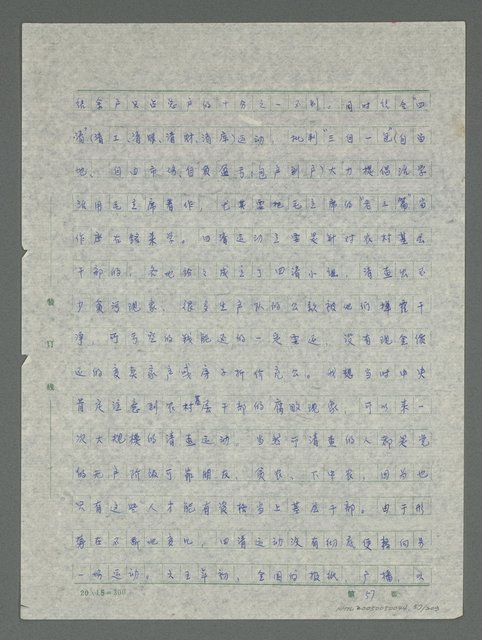 余户只占总户的十分之一不到。同时结合"四
清"(清工、清账、清财、清库)运动，批判"三自一包"(自留
地、自由市场、自负盈亏、包产到户)大力提倡活学
活用毛主席著作，尤其要把毛主席的"老三篇"当
作座右铭来学。四清运动主要是针对农村基层
干部的，各地纷纷成立了四清小组，清查出不
少贪污现象，很多生产队的公款被他们挥霍干
净，所亏空的钱能退的一定要退，没有现金偿
还的变卖家产或房子折价充公。我想当时中央
肯定注意到农村基层干部的腐败现象，可以来一
次大规模的清查运动。当然于清查的人都是党
的无产阶级可靠朋友，贫农、下中农，因为也
只有这些人才能有资格当上基层干部。由于形
势在不断地变化，四清运动没有彻底便转向另
一场运动。六五年初，全国的报纸，广播，以
装
订
线
20×15=300
第 57 页
NMTL 20050050044 57/203